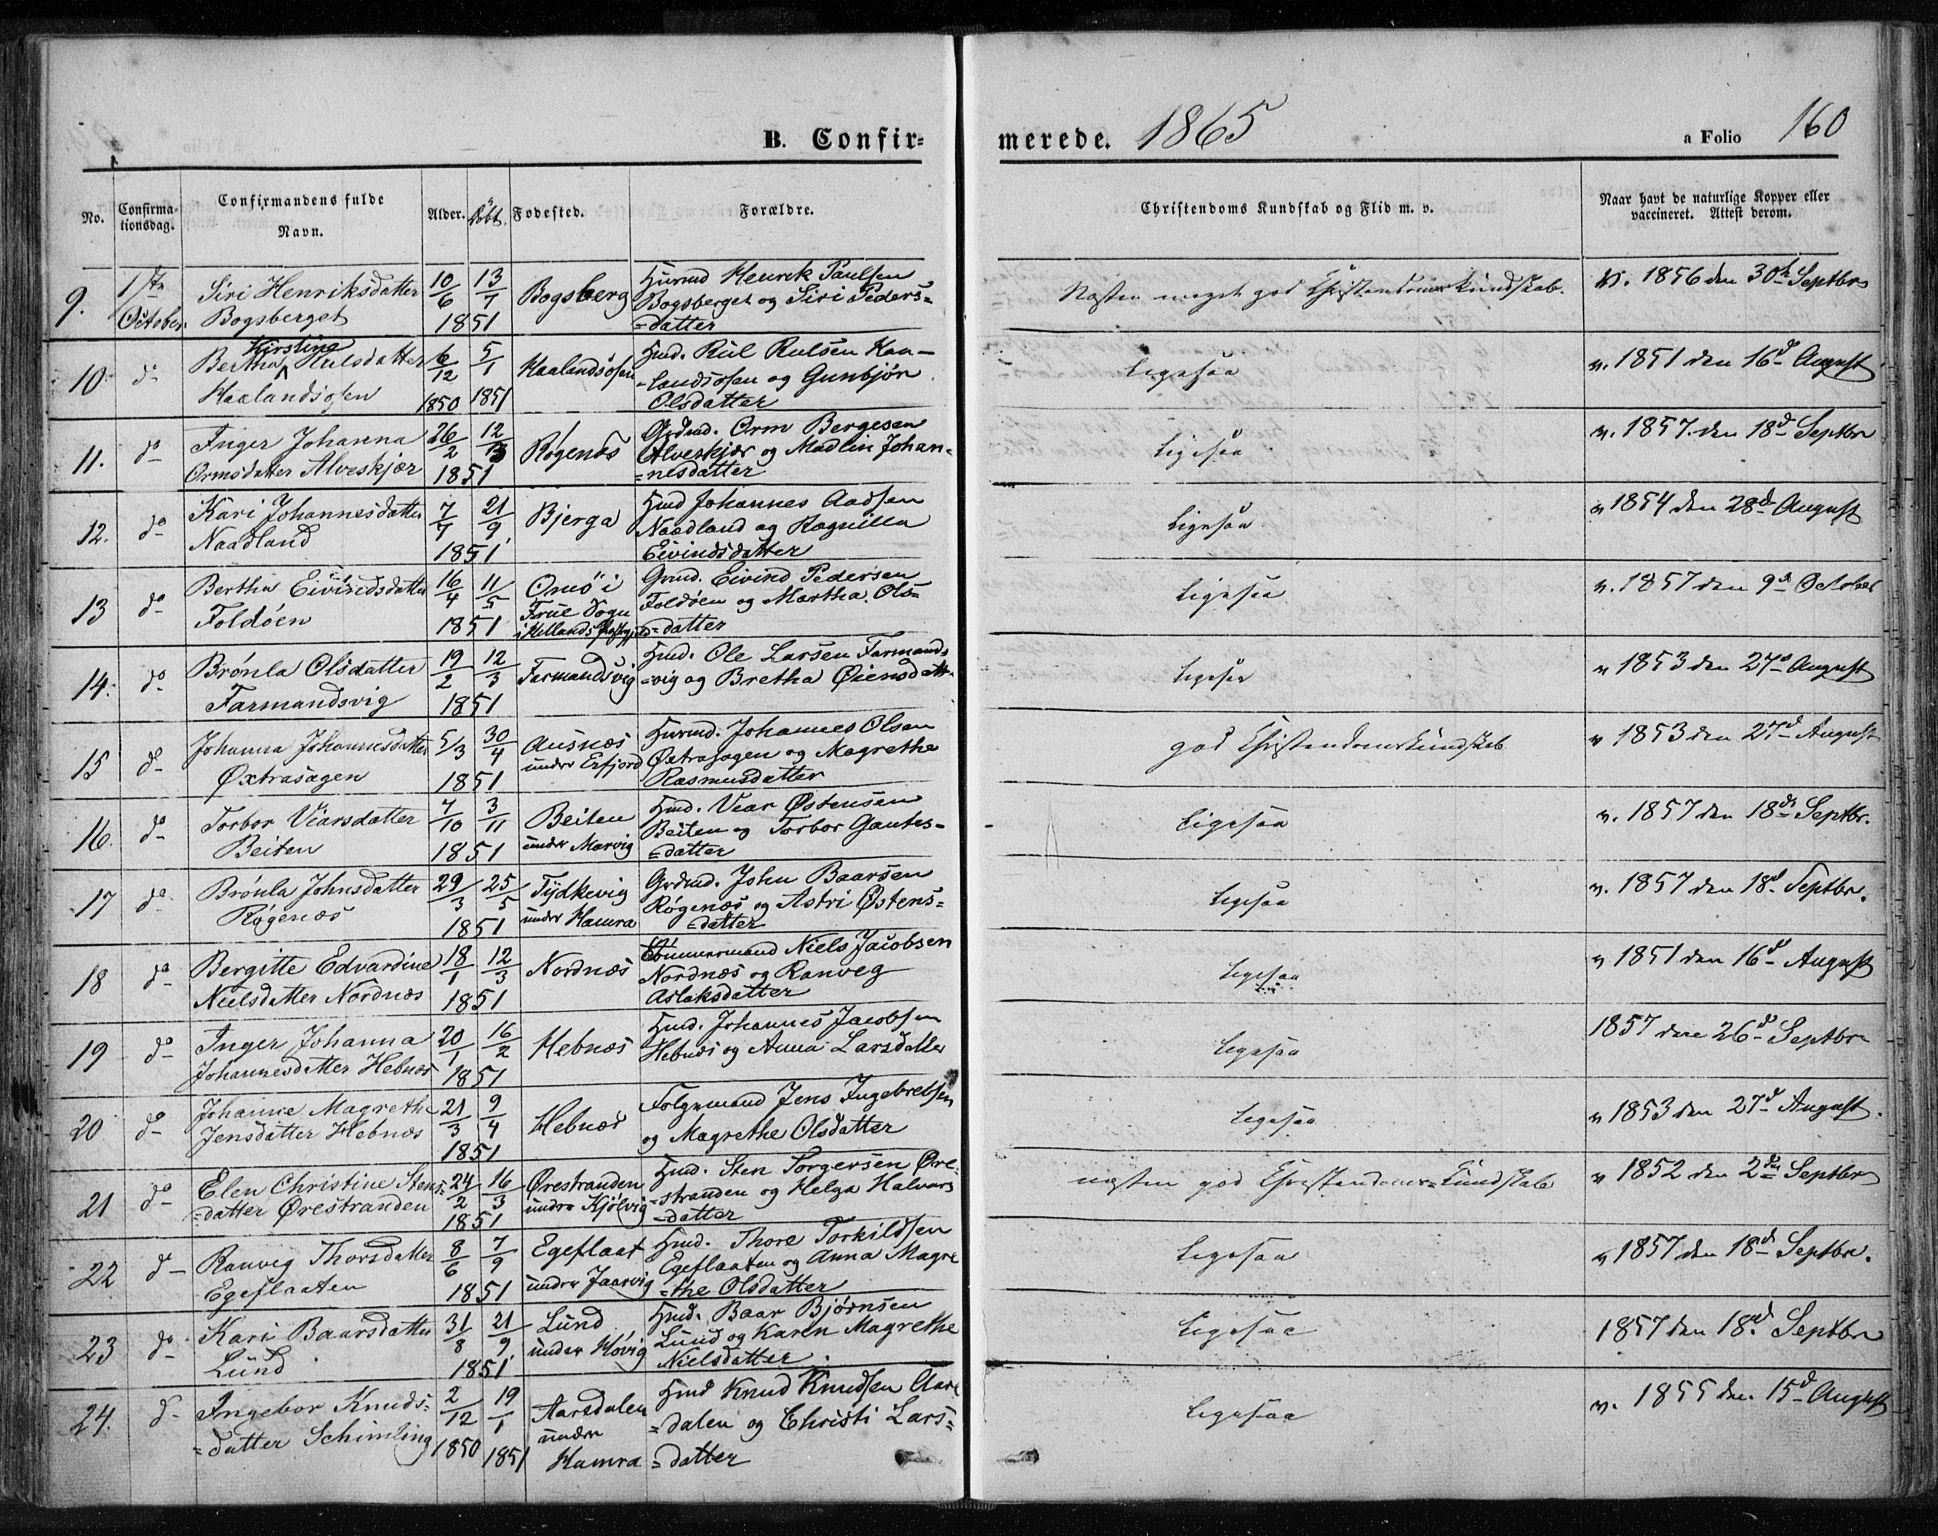 B. Confir-
merede. 1865
a Folio 160
No.
Confirma-
tionsdag.
Confirmandens fulde
Navn.
Alder.
Döbt.
Fodested.
Forældre.
Christendoms Kundskab og Flid m. v.
Naar havt de naturlige Kopper eller
vaccineret. Attest derom.
9. 1ste October. Siri Henriksdatter Bogsberget 10/6 13/7 1851 Bogsberg
Huusmd Henrik Paulsen
Bogsberget og Siri Peders=
=datter
Næsten meget god Christendomskundskab. v. 1856 den 30te Septbr
10. do Bertha Kirstine Rulsdatter Kaalandsosen 6/12 1850 5/1 1851 Kaalandsosen
Hmd. Rul Rulsen Kaa-
=landsosen og Gunbjør
Olsdatter
Ligesaa v. 1851 den 16d August
11. do Inger Johanna Ormsdatter Alveskjær 26/2 12/3 1851 Røgenæs
Grdmd. Orm Bergesen
Alveskjær og Madlin Johan-
=nesdatter
Ligesaa v. 1857. den 18d Septbr
12. do Kari Johannesdatter Naadland 7/7 21/9 1851 Bjerga
Hmd Johannes Aadsen
Naadland og Ragnilla
Eivindsdatter
Ligesaa v 1854 den 28d August
13 do Bertha Eivindsdatter Foldøen 16/4 11/5 1851
Omö i
Frue Sogn
i Hellands Prstgjeld
Grmd. Eivind Pedersen
Foldøen og Martha Ols=
=datter
Ligesaa v. 1857 den 9d October
14. do Brønla Olsdatter Farmandsvig 19/2 12/3 1851 Farmandsvig
Hmd. Ole Larsen Farmands
=vig og Bretha Øiensdatt
Ligesaa v 1853 den 27d August
15 do Johanna Johannesdatter Øxtrasagen 5/3 30/4 1851
Ausnæs
under Erfjord
Huusmd. Johannes Olsen
Øxtrasagen og Magrethe
Rasmusdatter
god Christendomskundskab v 1853 den 27d August
16. do Torbor Viarsdatter Beiten 7/10 3/11 1851
Beiten
under Marvig
Hmd. Vear Østensen
Beiten og Torbor Gautes-
=datter
Ligesaa v. 1857 den 18de Septbr.
17 do Brønla Johnsdatter Røgenæs 29/3 25/5 1851
Tydkevig
under Hamra
Grdmd. John Baarsen
Røgenæs og Astri Østens=
=datter
Ligesaa v. 1857 den 18d Septbr.
18 do Bergitte Edvardine Nielsdatter Nordnæs 18/1 12/3 1851 Nordnæs
Tømmermand Niels Jacobsen
Nordnæs og Ranveg
Aslaksdatter
Ligesaa v 1851 den 16d August
19 do Inger Johanna Johannesdatter Hebnæs 20/1 16/2 1851 Hebnæs
Hmd. Johannes Jacobsen
Hebnæs og Anna Larsdatter
Ligesaa 1857 den 26d Septbr
20 do Johanne Magrethe Jensdatter Hebnæs 21/3 9/4 1851 Hebnæs
Folgemand Jens Ingebretsen
og Magrethe Olsdatter
Ligesaa v 1853 den 27d August.
21 do Elen Christine Stens=
=datter Ørestranden 24/2 16/3 1851
Ørestranden
under Kjølvig
Hmd. Sten Torgersen Øre-
=stranden og Helga Halvors
=datter
næsten god Christendoms=Kundskab v 1852 den 2den Septbr
22 do Ranvig Thorsdatter Egeflaaten 8/6 7/9 1851
Egeflaat
under Jaarvig
Hmd. Thore Torkildsen
Egeflaaten og Anna Magre
=the Olsdatter
Ligesaa v 1857 den 18d Septbr.
23 do Kari Baarsdatter Lund 31/8 21/9 1851
Lund
under Høvig
Hmd. Baar Bjørnsen
Lund og Karen Magrethe
Nielsdatter.
Ligesaa 1857 den 18d Septbr
24. do Ingebor Knuds=
=datter Schimling 2/12 1850 19/1 1851
Aarsdalen
under
Hamra
Hmd Knud Knudsen Aars
=dalen og Christi Lars=
=datter
Ligesaa v. 1855 den 15d August